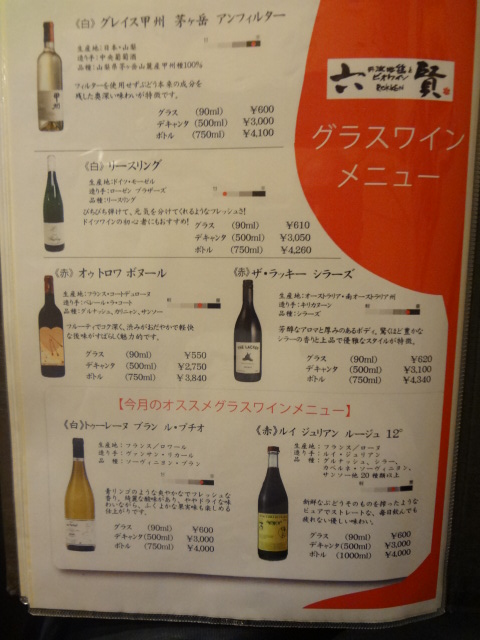 《白》グレイス甲州 茅ヶ岳 アンフィルター
生産地:日本・山梨
造り手:中央葡萄酒
品種:山梨県茅ヶ岳山麓産甲州種100%
フィルターを使用せずぶどう本来の成分を
残した奥深い味わいが特徴です。
グラス (90ml) ¥600
デキャンタ (500ml) ¥3,000
ボトル (750ml) ¥4,100
六賢
ROKKEN
グラスワイン
メニュー
《白》リースリング
生産地:ドイツ・モーゼル
造り手:ローゼン ブラザーズ
品種:リースリング
ぴちぴち弾けて、元気を分けてくれるようなフレッシュさ!
ドイツワインの初心者にもおすすめ!
グラス (90ml) ¥610
デキャンタ (500ml) ¥3,050
ボトル (750ml) ¥4,260
《赤》オゥトロワ ボヌール
生産地:フランス・コートデュローヌ
造り手:ペレール・ラ・コート
品種:グルナッシュ、カリニャン、サンソー
フルーティでコク深く、渋みがおだやかで軽快
な後味がすばらしく魅力的です。
グラス (90ml) ¥550
デキャンタ (500ml) ¥2,750
ボトル (750ml) ¥3,840
《赤》ザ・ラッキー シラーズ
生産地:オーストラリア・南オーストラリア州
造り手:キリカヌーン
品種:シラーズ
芳醇なアロマと厚みのあるボディ。驚くほど豊かな
シラーの香りと上品で優雅なスタイルが特徴。
グラス (90ml) ¥620
デキャンタ (500ml) ¥3,100
ボトル (750ml) ¥4,340
【今月のオススメグラスワインメニュー】
《白》トゥーレーヌ ブラン ル・プチオ
生産地:フランス/ロワール
造り手:ヴァンサン・リカール
品種:ソーヴィニヨン・ブラン
青リンゴのような爽やかでフレッシュな
香り、綺麗な酸味があり、ややドライな味
わいながら、ふくよかな果実味も楽しめる
仕上がりです。
グラス (90ml) ¥600
デキャンタ (500ml) ¥3,000
ボトル (750ml) ¥4,000
《赤》ルイ ジュリアン ルージュ 12°
生産地:フランス/ローヌ
造り手:ルイ・ジュリアン
品種:グルナッシュ、シラー、
カベルネ・ソーヴィニヨン、
サンソー他 20種類以上
新鮮なぶどうそのものを搾ったような
ピュアでストレートな、毎日飲んでも
疲れない優しい味わい。
グラス (90ml) ¥600
デキャンタ(500ml) ¥3,000
ボトル (1000ml) ¥4,000